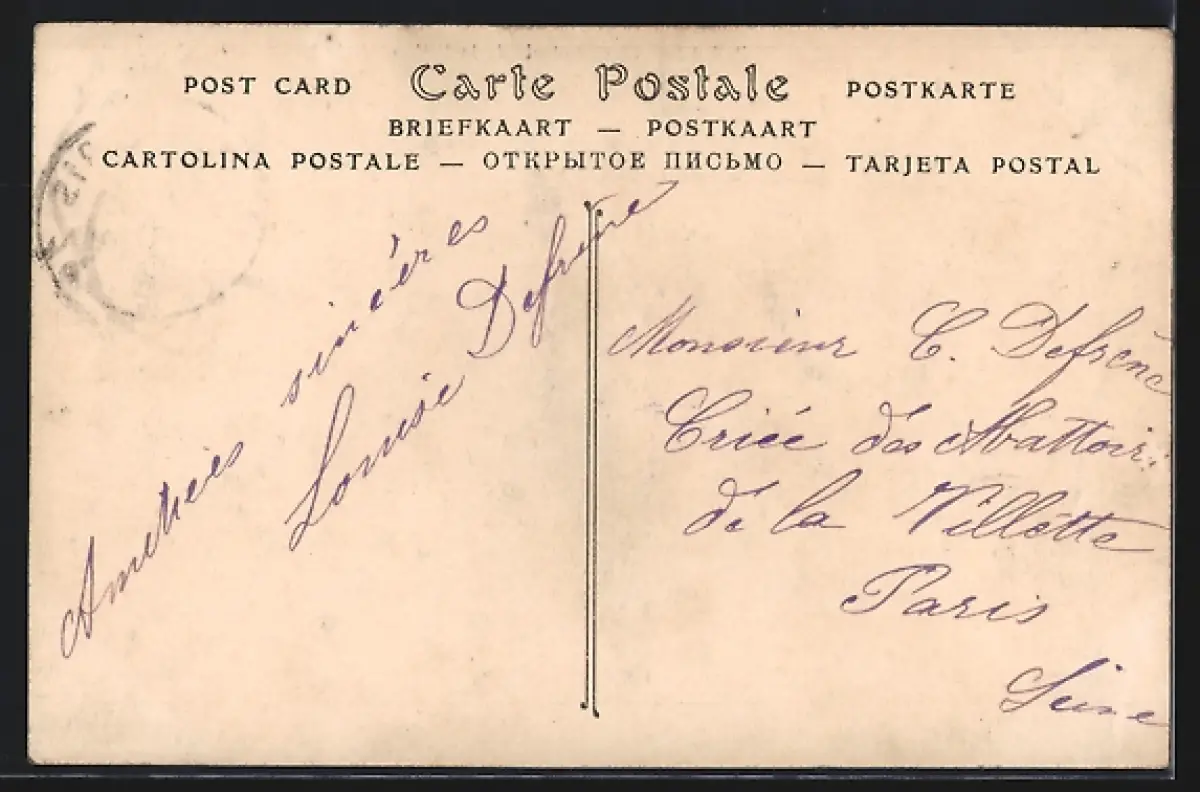 POST CARD Carte Postale POSTKARTE
BRIEFKAART — POSTKAART
CARTOLINA POSTALE — ОТКРЫТОЕ ПИСЬМО — TARJETA POSTAL
Amitiées sincères
Louise Defrêne
Monsieur C. Defrêne
Criée des Abattoirs
de la Villette
Paris
Seine